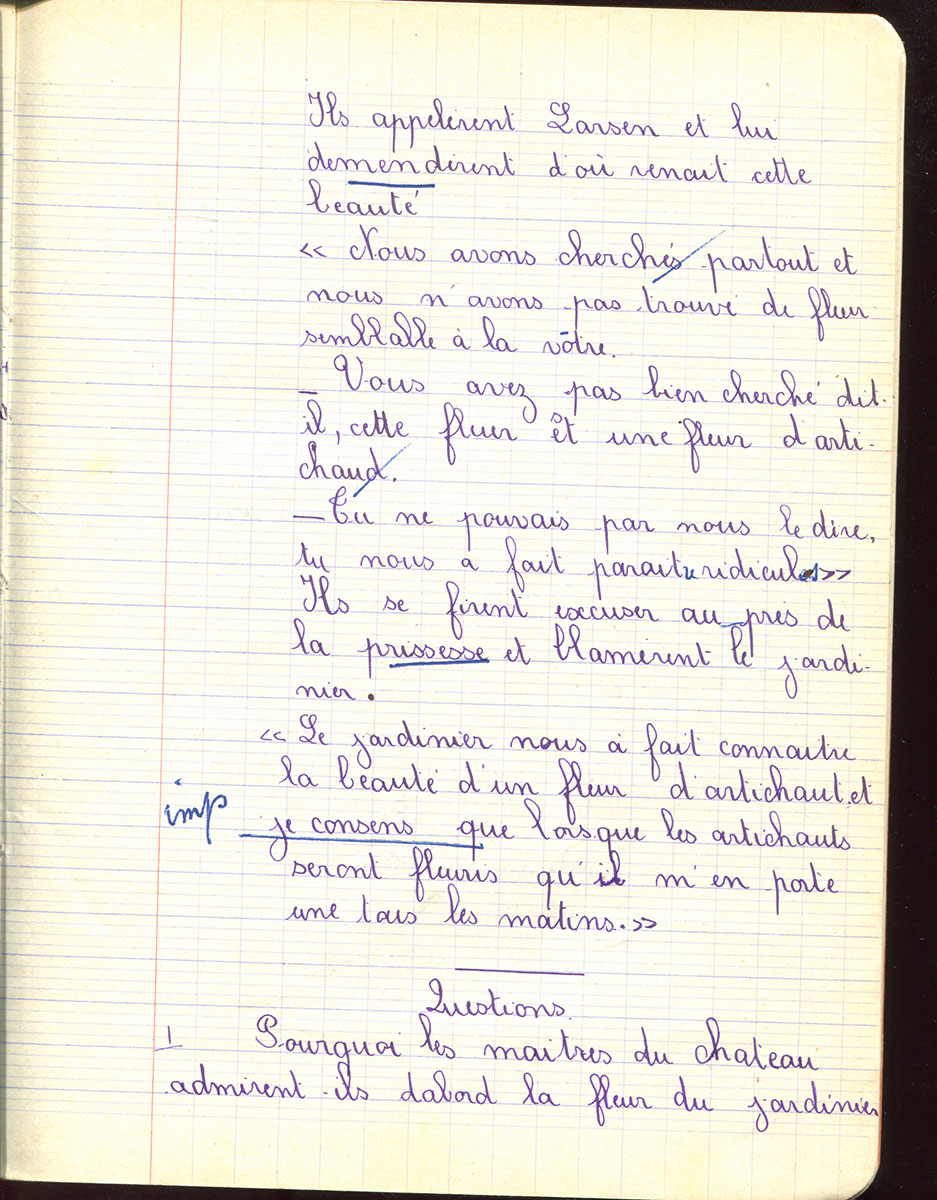 Ils appelèrent Larsen et lui
demendèrent d'où venait cette
beauté
« Nous avons cherchés partout et
nous n'avons pas trouvé de fleur
semblable à la vôtre.
_ Vous avez pas bien cherché dit-
il, cette fluer êt une fleur d'arti-
chaud.
— Tu ne pouvais par nous le dire,
tu nous a fait paraitre ridicules»
Ils se firent excuser au près de
la prissesse et blamèrent le jardi-
nier.
« Le jardinier nous à fait connaitre
la beauté d'un fleur d'artichaut, et
imp je consens que lorsque les artichauts
seront fleuris qu'il m'en porte
une tous les matins.»
Questions.
1 Pourquoi les maitres du chateau
admirent-ils dabord la fleur du jardinier